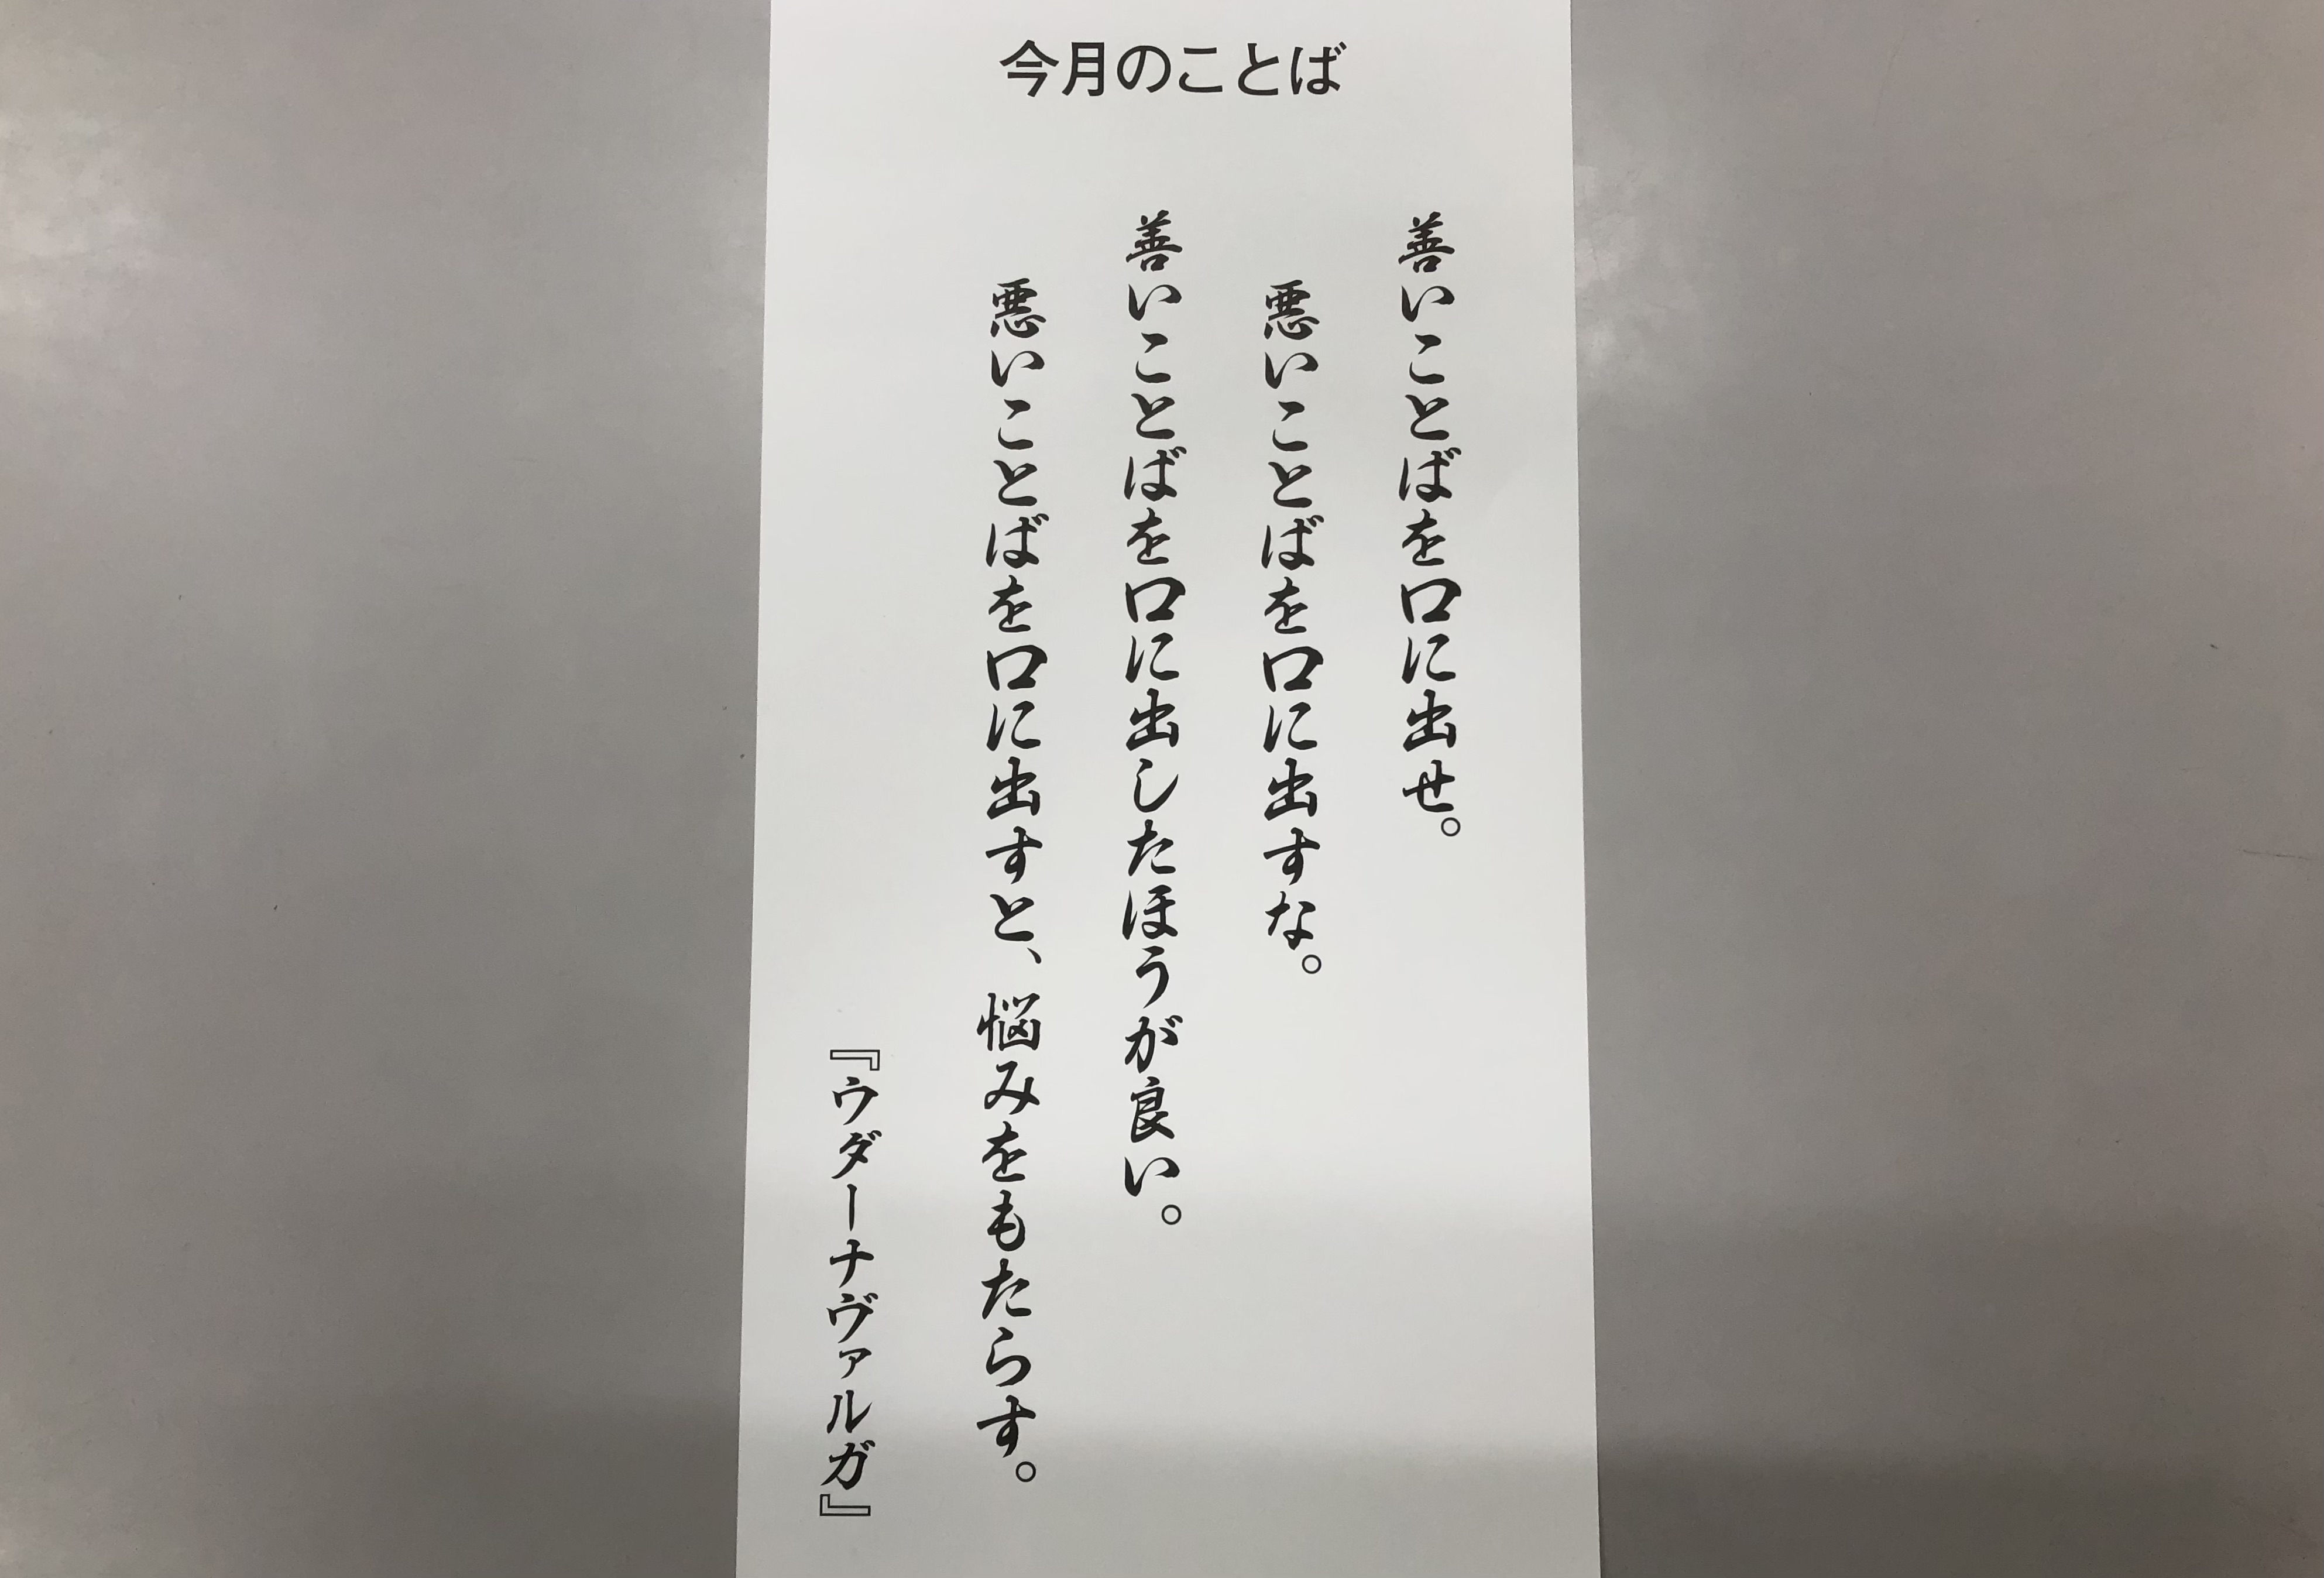 今月のことば
善いことばを口に出せ。
悪いことばを口に出すな。
善いことばを口に出したほうが良い。
悪いことばを口に出すと、悩みをもたらす。
『ウダーナヴァルガ』